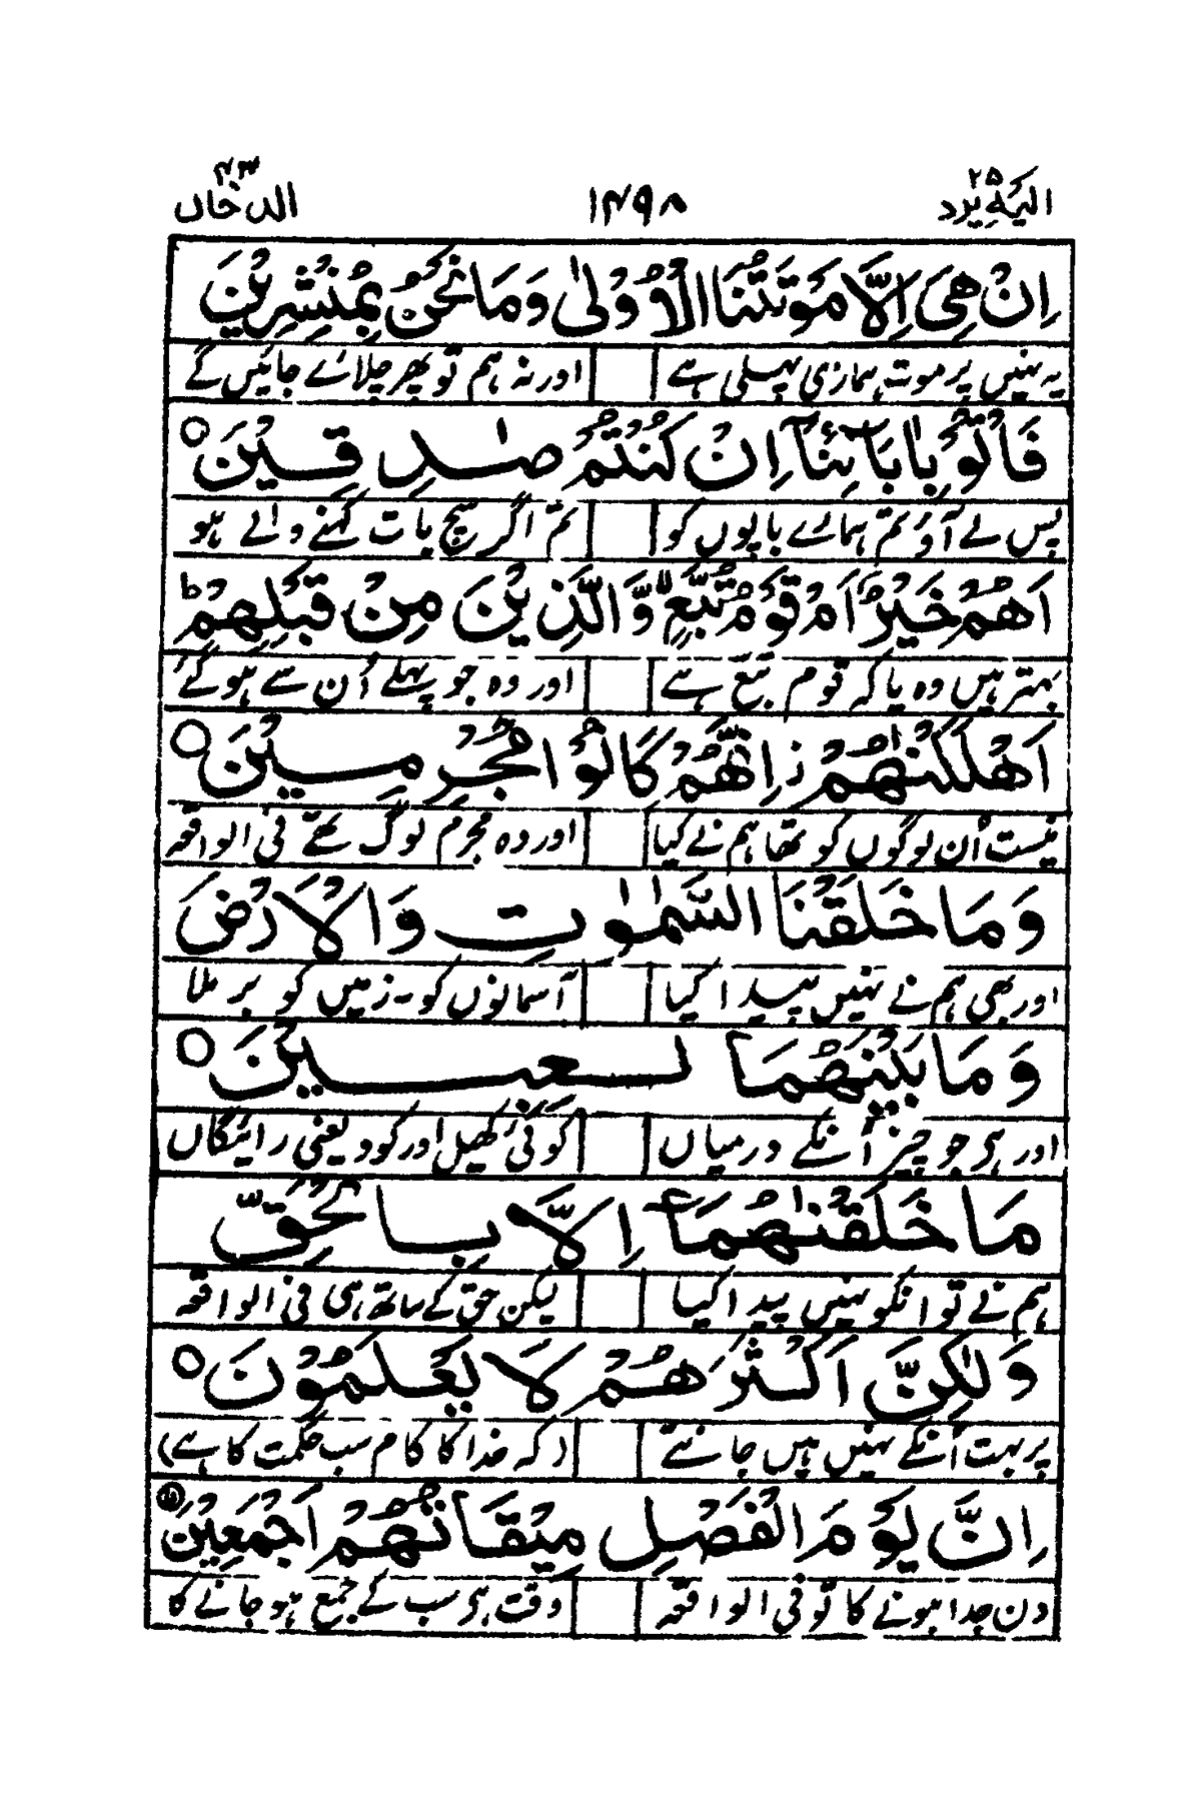 الیہ یرد ۲۵ ۱۴۹۸ الدخاں ۴۴
اِنْ هِیَ اِلَّا مَوْتَتُنَا الْاُوْلٰی وَمَا نَحْنُ بِمُنْشَرِیْنَ
یہ نہیں پر موت ہماری پہلی ہے اور نہ ہم تو پھر جلائے جائیں گے
فَاْتُوْا بِاٰبَآئِنَآ اِنْ كُنْتُمْ صٰدِقِیْنَ ○
پس لے آؤ تم ہمارے باپوں کو تم اگر سچ بات کہنے والے ہو
اَهُمْ خَیْرٌ اَمْ قَوْمُ تُبَّعٍ ۙ وَّالَّذِیْنَ مِنْ قَبْلِهِمْ ؕ
بہتر ہیں وہ یا کہ قوم تبع ہے اور وہ جو پہلے اُن سے ہو گئے
اَهْلَكْنٰهُمْ ز اِنَّهُمْ كَانُوْا مُجْرِمِیْنَ ○
نیست اُن لوگوں کو تھا ہم نے کیا اور وہ مجرم لوگ تھے فی الواقعہ
وَمَا خَلَقْنَا السَّمٰوٰتِ وَالْاَرْضَ
اور بھی ہم نے نہیں پیدا کیا آسمانوں کو ۔ زمیں کو بر ملا
وَمَا بَیْنَهُمَا لٰعِبِیْنَ ○
اور ہر جو چیز اُنکے درمیاں کوئی کھیل اور کود یعنی رائیگاں
مَا خَلَقْنٰهُمَآ اِلَّا بِالْحَقِّ
ہم نے تو انکو نہیں پیدا کیا لیکن حق کے ساتھ ہی فی الواقعہ
وَلٰكِنَّ اَكْثَرَهُمْ لَا یَعْلَمُوْنَ ○
پر بہت اُنکے نہیں ہیں جانتے (کہ خدا کا کام سب حکمت کا ہے)
اِنَّ یَوْمَ الْفَصْلِ مِیْقَاتُهُمْ اَجْمَعِیْنَ
دن جدا ہونے کا تو فی الواقعہ وقت ہر سب کے جمع ہو جانے کا